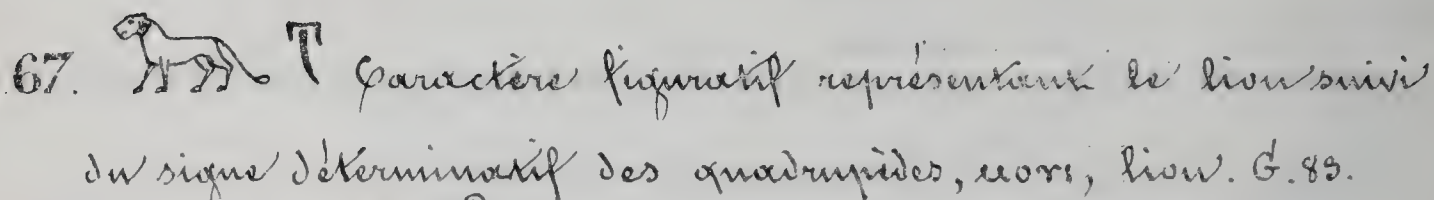 67. 𓃬 𓄛 Caractère figuratif représentant le lion suivi
du signe déterminatif des quadrupèdes, ⲙⲟⲩⲓ, lion. G. 83.